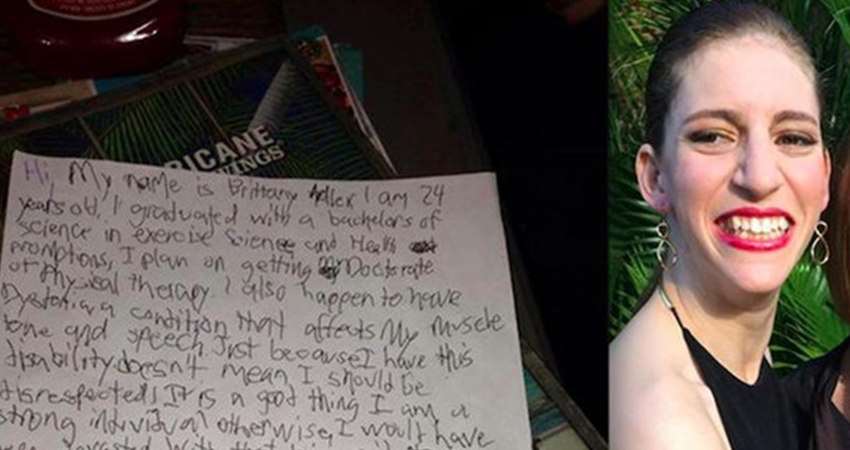 RICANE
WINGS
Hi, My name is Brittany Adler I am 24
years old, I graduated with a bachelors of
science in exercise science and Health
promotions, I plan on getting my Doctorate
of Physical therapy. I also happen to have
Dystonia, a condition that affects My muscle
tone and speech. Just because I have this
disability doesn't mean I should be
disrespected! It is a good thing I am a
strong individual otherwise, I would have
been with that